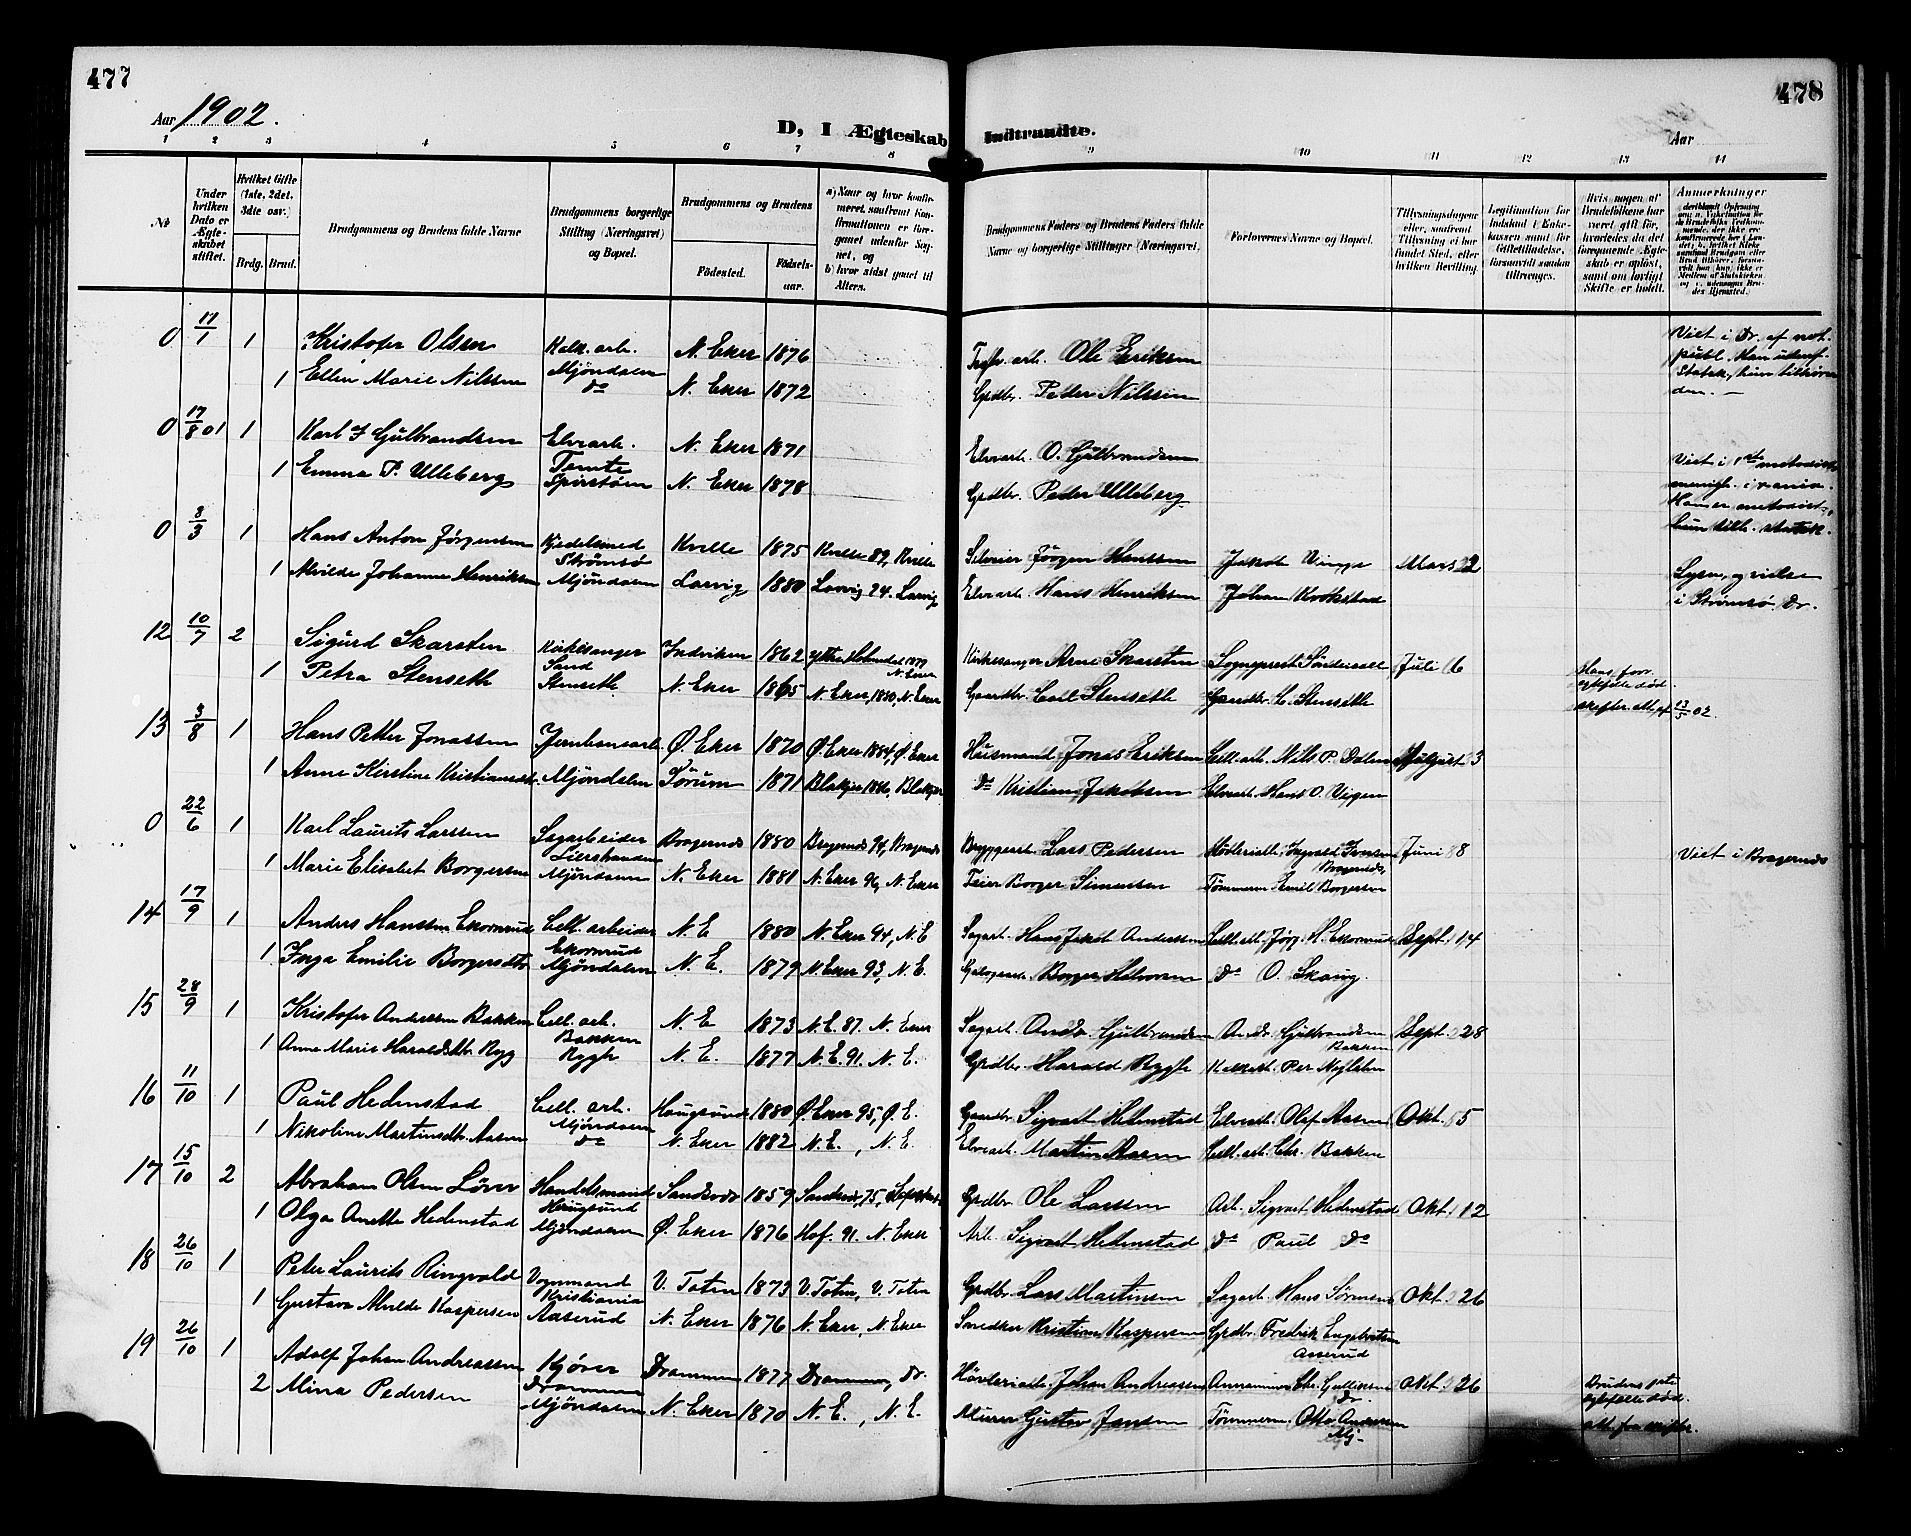 477
478
Aar 1902.
D, I Ægteskab Indtraadte.
Aar
1 2 3 4 5 6 7 8 9 10 11 12 13 14
№
Under hvilken Dato er Ægteskabet stiftet.
Hvilket Gifte (1ste, 2det, 3die osv.)
Brdg. Brud.
Brudgommens og Brudens fulde Navne
Brudgommens borgerlige Stilling (Næringsvei) og Bopæl.
Brudgommens og Brudens
Födested.
Födsels-aar.
a) Naar og hvor konfirmeret, saafremt Konfirmationen er foregaaet udenfor Sognet, og
b) hvor sidst gaaet til Alters.
Brudgommens Faders og Brudens Faders fulde Navne og borgerlige Stillinger (Næringsvei).
Forlovernes Navne og Bopæl.
Tillysningsdagene eller, saafremt Tillysning ei har fundet Sted, efter hvilken Bevilling.
Legitimation for Indskud i Enkekassen samt for Giftetilladelse, forsaavidt saadan tiltrænges.
Hvis nogen af Brudefolkene har været gift før, hvorledes da det foregaaende Ægteskab er oplöst, samt om lovligt Skifte er holdt.
Anmærkninger
0 17/1 1 Kristofer Olsen Kalk. arb. N. Eker 1876 Ole Eriksen
1 Ellen Marie Nilssen Mjöndalen do N. Eker 1872 Grdbr. Peder Nilssen
Viet i Dr. af not.
publ. Han udenf.
Statsk., hun tilhører
den. —
0 17/8 01 1 Karl F Gulbrandsen Elvearb. N. Eker 1871 Elvearb. O. Gulbrandsen
1 Emma P. Ulleberg Tomte N. Eker 1878 Grdbr. Peder Ulleberg
Viet i 1ste metodist
menigh. i xania.
Han er metodist,
hun tilh. statsk.
0 8/3 1 Hans Anton Jørgensen Kjedelsmed Strömsö Kville 1875 Kville 89, Kville Jörgen Hanssen Jakob Vinge Mars 2
1 Alvilde Johanne Henriksen Mjöndalen Larvig 1880 Larvig 24. Larvig Elvearb. Hans Henriksen Johan Krokstad
Lysn. og vielse
i Strømsö, Dr.
12 10/7 2 Sigurd Skarsten Kirkesanger Sand Indviken 1862 1879 N. Eker Kirkesanger Arne Skarsten Sogneprest Juli 6
1 Petra Stenseth Stenseth N. Eker 1865 N. Eker, 1880, N. Eker Gaardbr. Carl Stenseth Gaardbr. C. Stenseth
Hans forr.
ektefelle död
skifter. att. af 13/5 02.
13 3/8 1 Hans Petter Jonassen Jernbanearb. Ø. Eker 1870 Ø. Eker 1884, Ø. Eker Husmand Jonas Eriksen Cell. arb. Nils P. Dalen August 3
1 Anne Kirstine Kristiansdtr. Mjöndalen Sörum 1871 Blakjer 1886, Blakjer do Kristian Jakobsen Elvearb. Hans O. Vigen
0 22/6 1 Karl Laurits Larssen Sagarbeider Lierstranden Bragernæs 1880 Bragernæs 94, Bragernæs Bryggearb. Lars Pedersen Høvleriarb. Ingvald Jensen Bragernæs Juni 8
1 Marie Elisabet Borgersen Mjöndalen N. Eker 1881 N. Eker 96, N. Eker Feier Borger Simensen Tömmerm. Emil Borgersen
Viet i Bragernæs
14 17/9 1 Anders Hanssen Ekornrud Cell. arbeider Ekornrud N. E 1880 N. Eker 94, N. E Sagarb. Hans Jakob Anderssen Cell. arb. Jörg. H. Ekornrud Sept. 14
1 Inga Emilie Borgersdtr Mjöndalen N. E. 1879 N. Eker 93, N. E. Borger Halvorsen do O. Skaug.
15 28/9 1 Kristofer Anderssen Bakken Cell. arb. Bakken N. E 1873 N. E. 87. N. Eker Sagarb. Andr. Gulbrandsen Andr. Gulbrandsen Bakken Sept. 28
1 Anne Marie Haraldsdtr Ryg Rygh N. E. 1877 N. E. 91. N. E. Grdbr. Harald Rygh
16 11/10 1 Paul Hedenstad Cell. arb. Mjöndalen Haugsund 1880 Ø. Eker 95, Ø. E. Gaardbr. Sigvart Hedenstad Elvearb. Olaf Aasen Okt. 5
1 Nikoline Martinsdtr. Aasen do N. Eker 1882 N. E., N. E. Elvearb. Martin Aasen Cell. arb. Chr. Bakken
17 15/10 2 Abraham Olsen Löver Handelsmand Haugsund Sandsvær 1859 Sandsvær, 75, Grdbr. Ole Larssen Arb. Sigvart Hedenstad Okt. 12
1 Olga Anette Hedenstad Mjöndalen Ø. Eker 1876 Hof. 91. N. Eker Arb. Sigvart Hedenstad do Paul do
18 26/10 1 Peter Laurits Ringvold Vognmand Kristiania V. Toten 1873 V. Toten, V. Toten Grdbr. Lars Martinsen Sagarb. Hans Sörensen Okt. 26
1 Gustava Alvilde Kaspersen Aaserud N. Eker 1876 N. Eker, N. Eker Snedker Kristian Kaspersen Grdbr. Fredrik Engebretsen Asserud
19 26/10 1 Adolf Johan Andreassen Kjører Drammen Drammen 1877 Drammen, Dr. Hövleriarb. Johan Andreassen Chr. Gulliksen Dr. Okt. 26
2 Mina Pedersen Mjöndalen N. Eker 1870 N. E., N. E. Murer Gustav Jensen Tömmerm. Otto Andersen Mj-
Brudens 1ste
ektefelle död.
att. fra skifter.